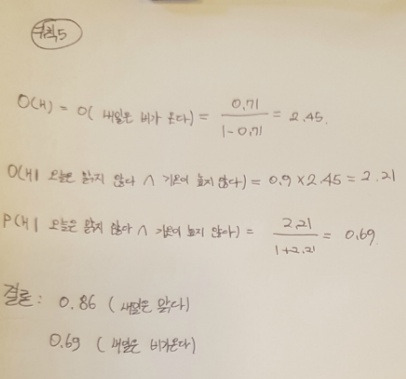 규칙5
O(H) = O( 내일은 비가 온다) = 0.71 / 1-0.71 = 2.45.
O(H| 오늘은 맑지 않다 ∧ 기온이 높지 않다) = 0.9 × 2.45 = 2.21
P(H | 오늘은 맑지 않다 ∧ 기온이 높지 않아) = 2.21 / 1+2.21 = 0.69
결론: 0.86 ( 내일은 맑다)
0.69 ( 내일은 비가온다)